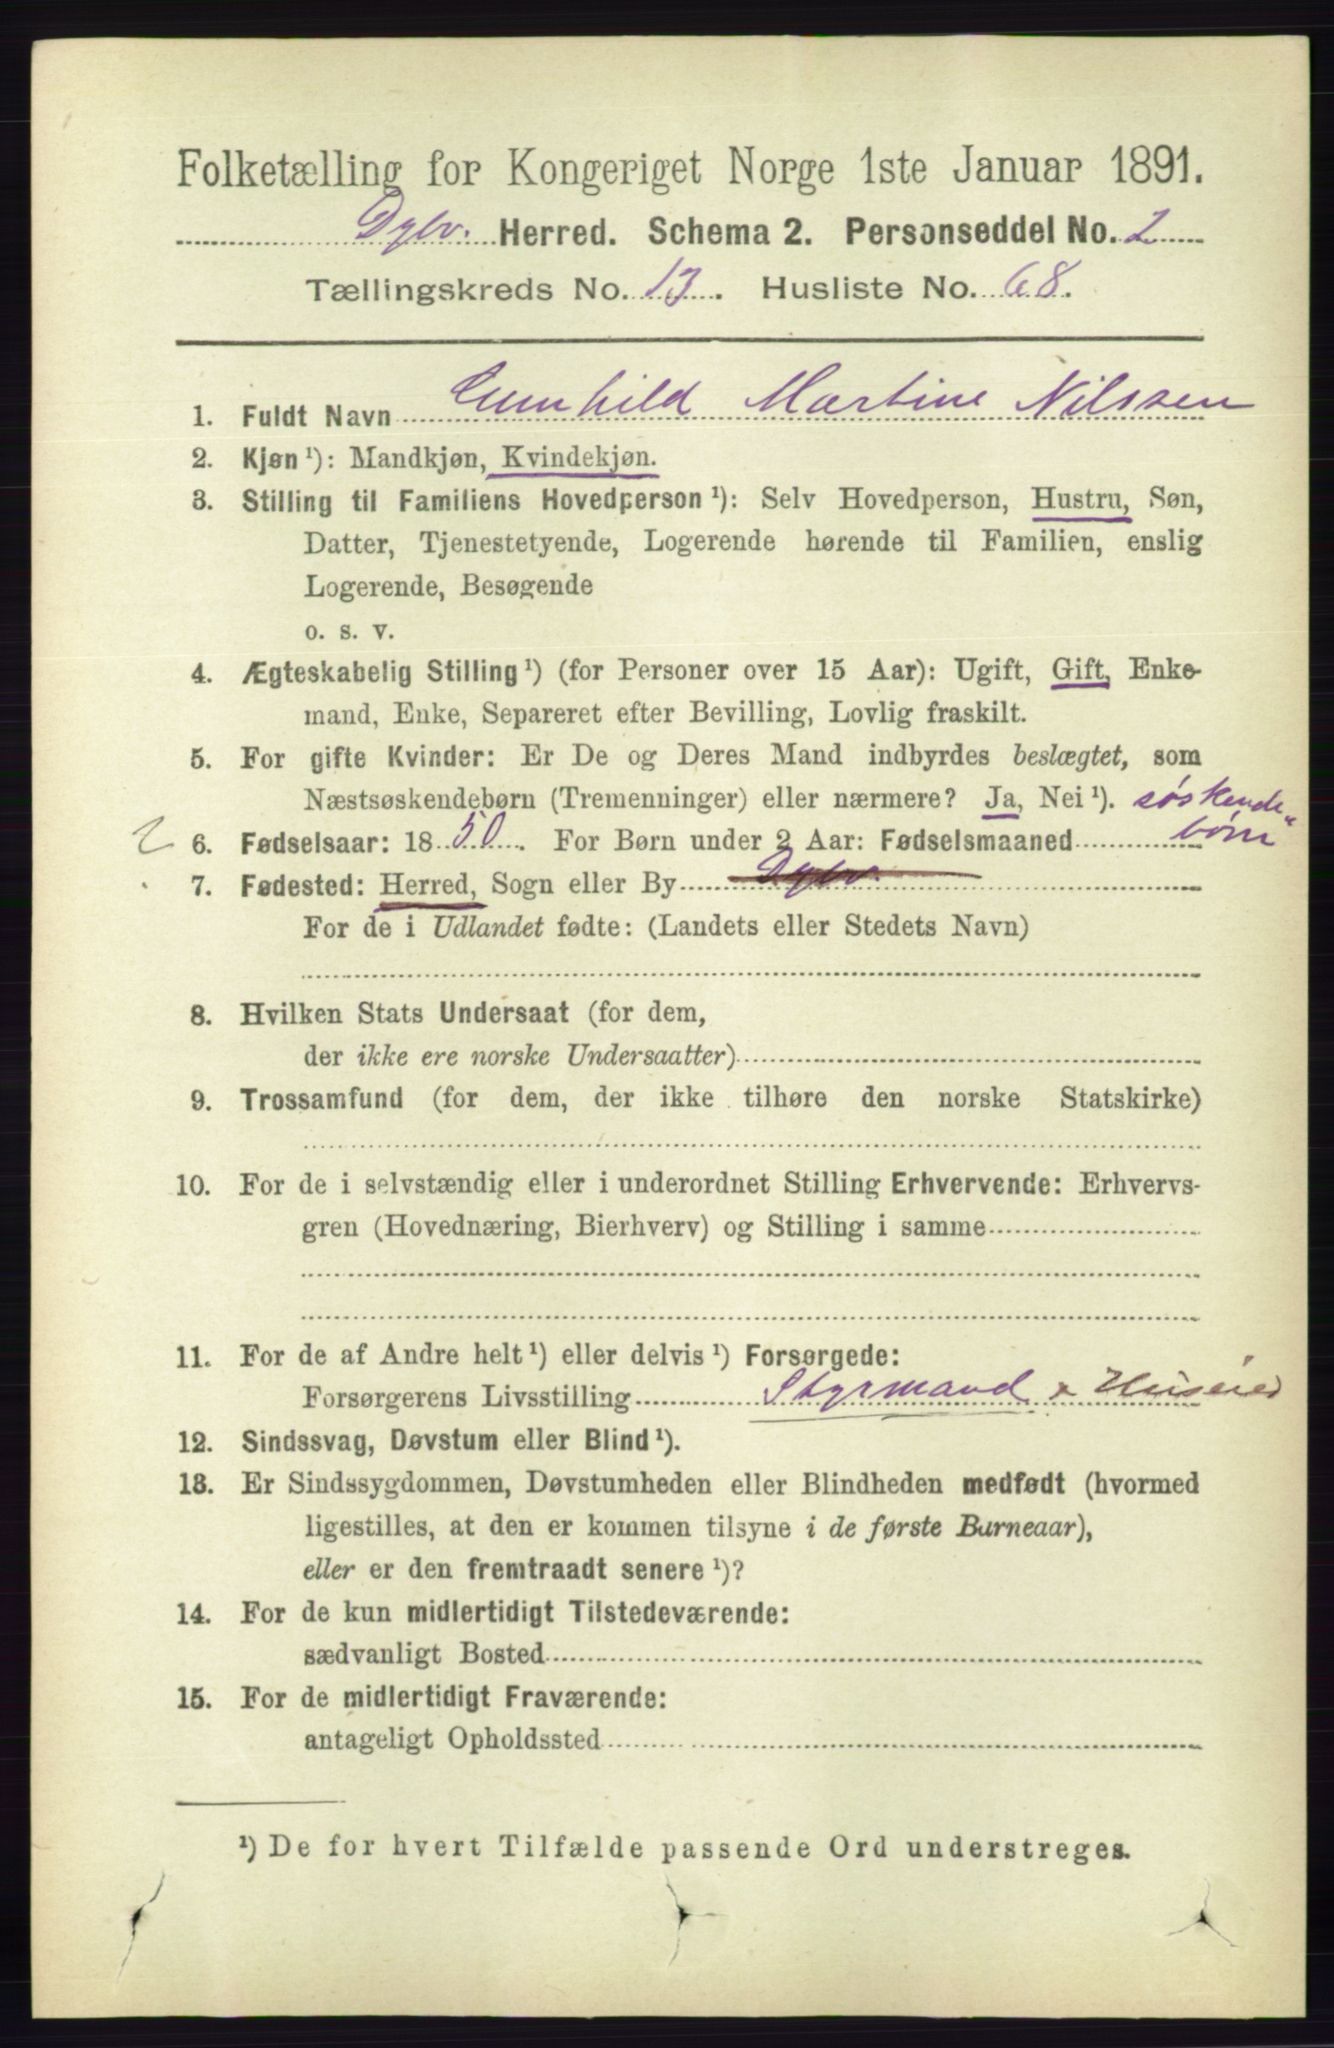 Folketælling for Kongeriget Norge 1ste Januar 1891.
Dybv. Herred. Schema 2. Personseddel No. 2
Tællingskreds No. 13. Husliste No. 68.
1. Fuldt Navn Gunhild Martine Nilssen
2. Kjøn ¹): Mandkjøn, Kvindekjøn.
3. Stilling til Familiens Hovedperson ¹): Selv Hovedperson, Hustru, Søn,
Datter, Tjenestetyende, Logerende hørende til Familien, enslig
Logerende, Besøgende
o. s. v.
4. Ægteskabelig Stilling ¹) (for Personer over 15 Aar): Ugift, Gift, Enke-
mand, Enke, Separeret efter Bevilling, Lovlig fraskilt.
5. For gifte Kvinder: Er De og Deres Mand indbyrdes beslægtet, som
Næstsøskendebørn (Tremenninger) eller nærmere? Ja, Nei ¹). søskende-
børn
2 6. Fødselsaar: 18 50. For Børn under 2 Aar: Fødselsmaaned
7. Fødested: Herred, Sogn eller By Dybv.
For de i Udlandet fødte: (Landets eller Stedets Navn)
8. Hvilken Stats Undersaat (for dem,
der ikke ere norske Undersaatter)
9. Trossamfund (for dem, der ikke tilhøre den norske Statskirke)
10. For de i selvstændig eller i underordnet Stilling Erhvervende: Erhvervs-
gren (Hovednæring, Bierhverv) og Stilling i samme
11. For de af Andre helt ¹) eller delvis ¹) Forsørgede:
Forsørgerens Livsstilling Styrmand x Huseier
12. Sindssvag, Døvstum eller Blind ¹).
13. Er Sindssygdommen, Døvstumheden eller Blindheden medfødt (hvormed
ligestilles, at den er kommen tilsyne i de første Barneaar),
eller er den fremtraadt senere ¹)?
14. For de kun midlertidigt Tilstedeværende:
sædvanligt Bosted
15. For de midlertidigt Fraværende:
antageligt Opholdssted
¹) De for hvert Tilfælde passende Ord understreges.